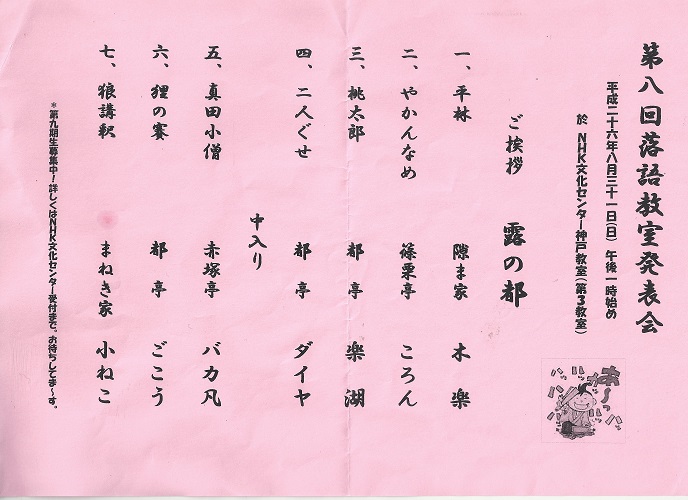 第八回落語教室発表会
平成二十六年八月三十一日(日) 午後一時始め
於 NHK文化センター神戸教室(第3教室)
ご挨拶 露の都
一、平林 隙ま家 木楽
二、やかんなめ 篠栗亭 ころん
三、桃太郎 都亭 楽湖
四、二人ぐせ 都亭 ダイヤ
中入り
五、真田小僧 赤塚亭 バカ凡
六、狸の賽 都亭 ごこう
七、狼講釈 まねき家 小ねこ
*第九期生募集中!詳しくはNHK文化センター受付まで。お待ちしてま〜す。
あ〜っ
ハッ
ハッ
ハッ
ハッ